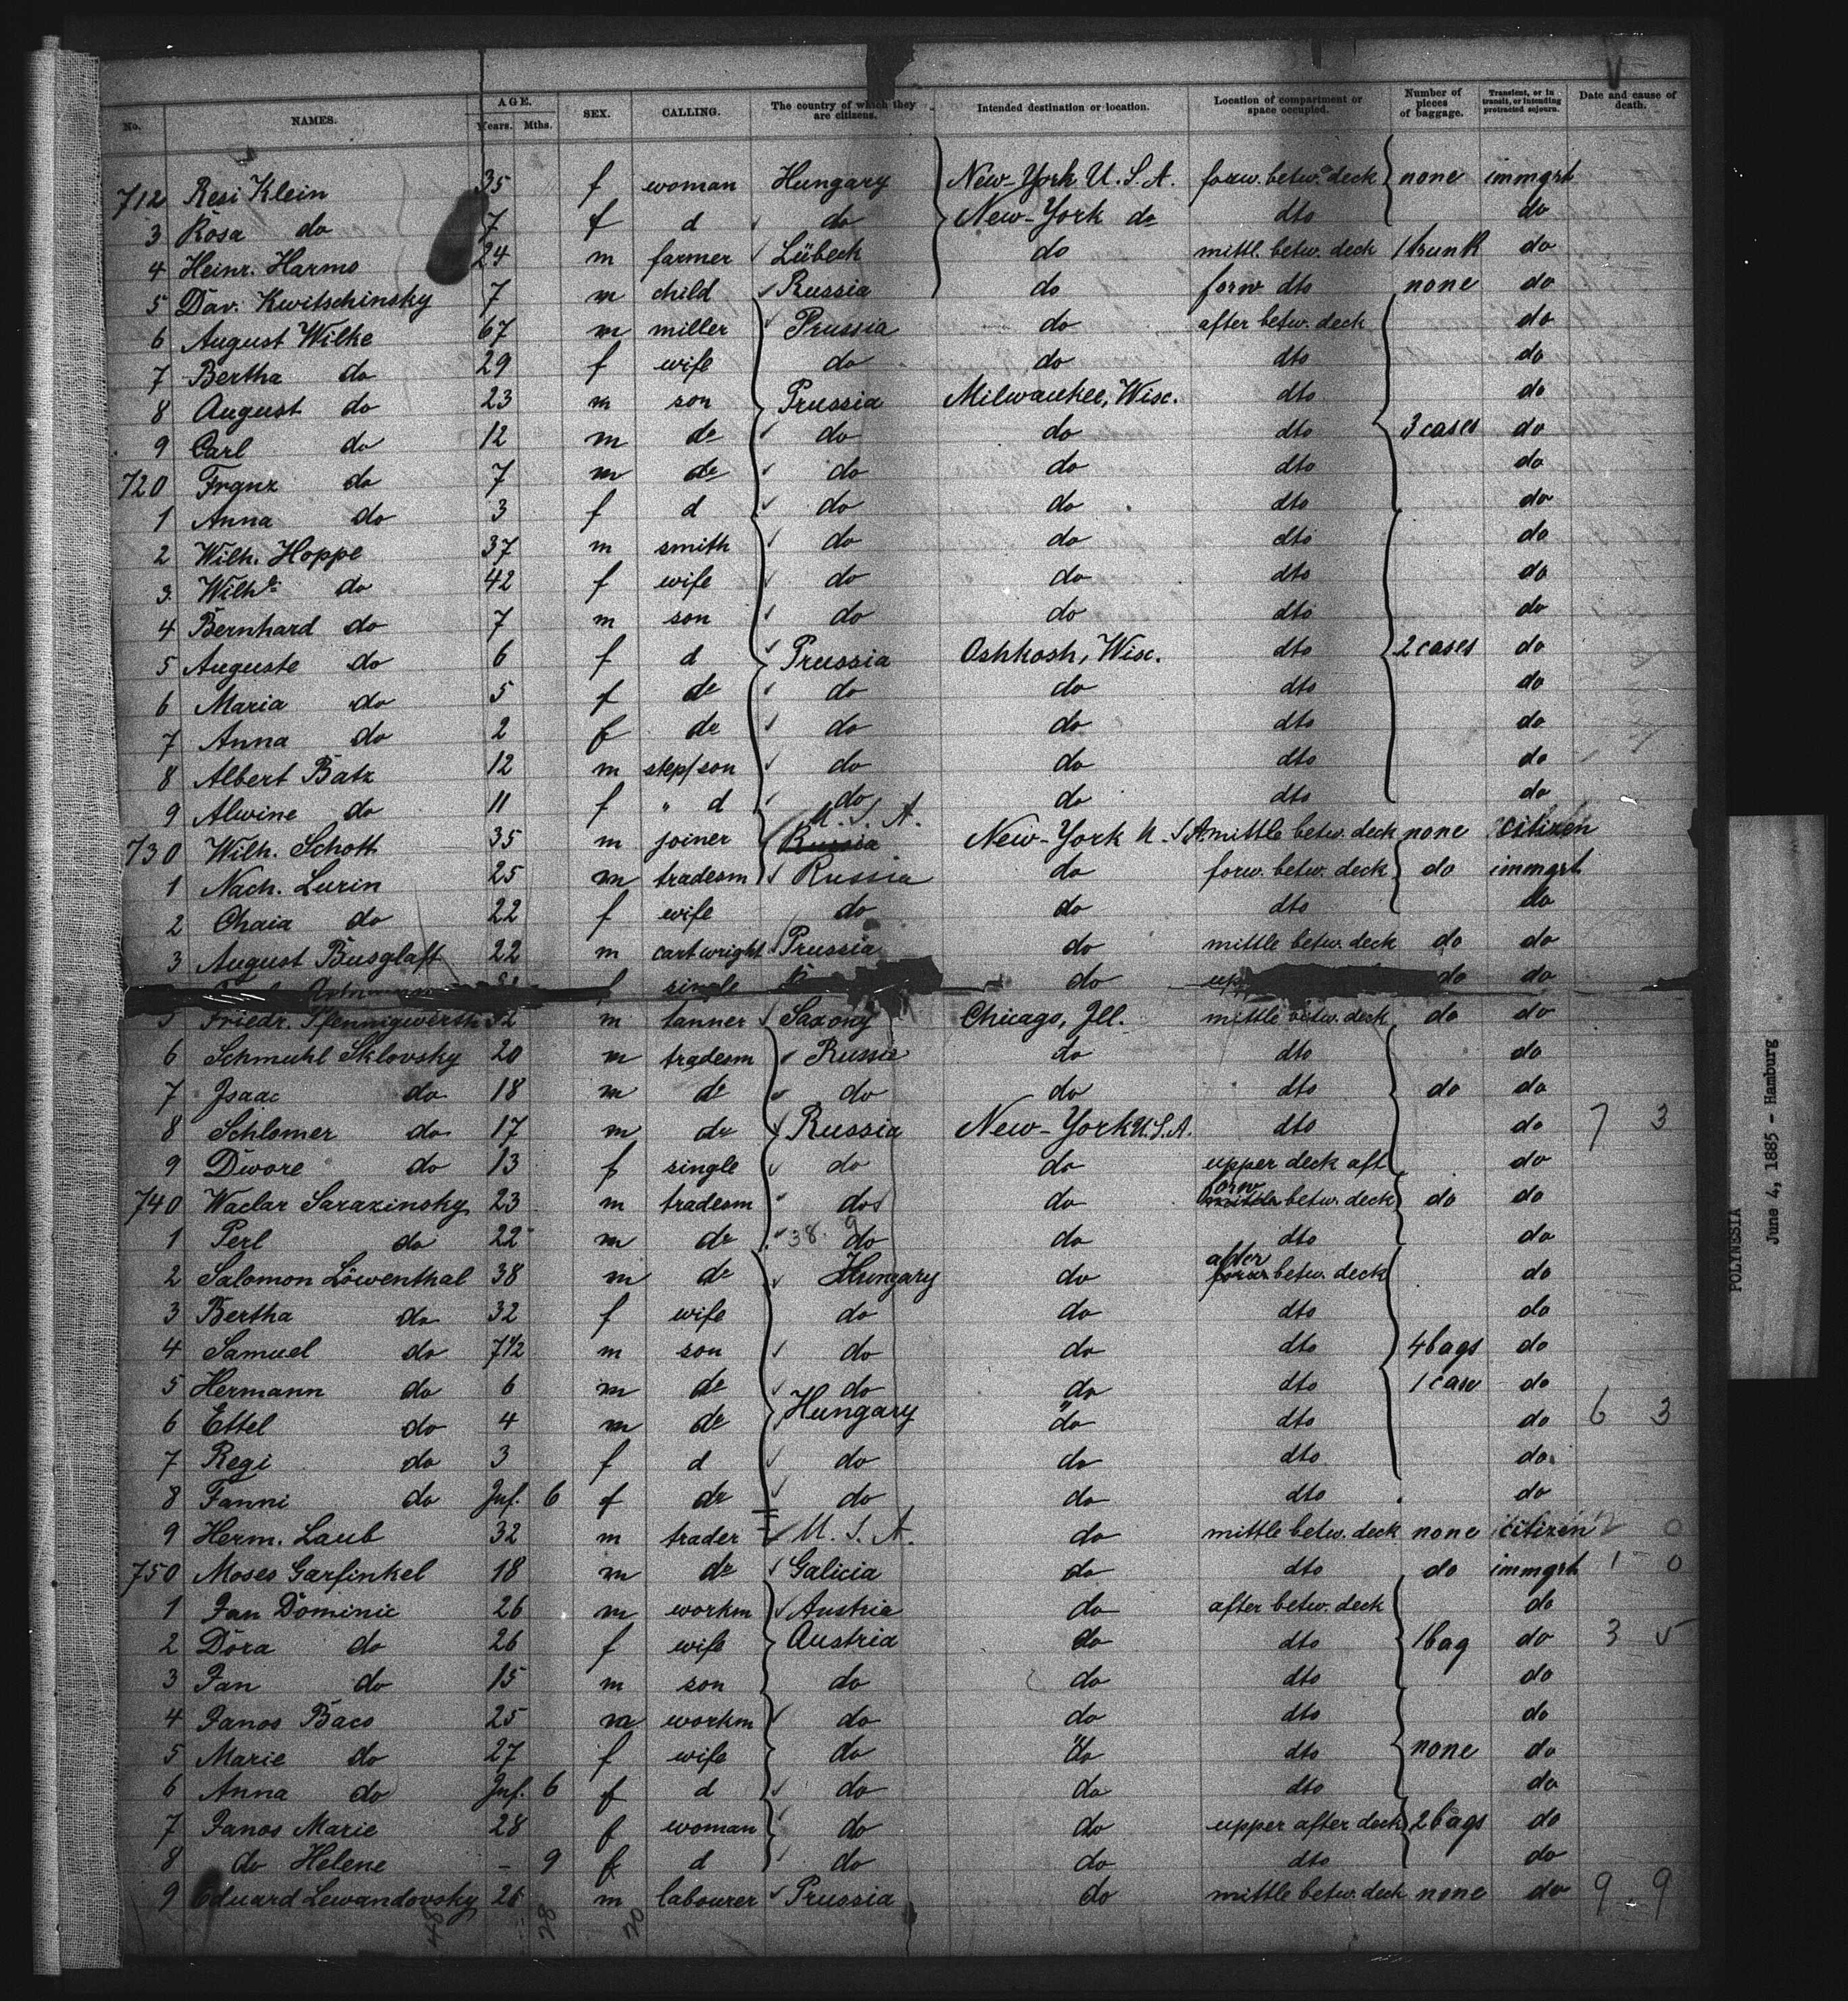 No. NAMES. AGE. Years. Mths. SEX. CALLING. The country of which they are citizens. Intended destination or location. Location of compartment or space occupied. Number of pieces of baggage. Transient, or in transit, or intending protracted sojourn. Date and cause of death.
712 Resi Klein 35 f woman Hungary New-York U.S.A. forw. betw. deck none immgrt
3 Rosa do 7 f d do New-York do dto do
4 Heinr. Harms 24 m farmer Lübeck do mittl. betw. deck 1 trunk do
5 Dav. Kwitschinsky 7 m child Russia do forw dto none do
6 August Wilke 67 m miller Prussia do after betw. deck do
7 Bertha do 29 f wife do do dto do
8 August do 23 m son Prussia Milwaukee, Wisc. dto do
9 Carl do 12 m do do do dto 3 cases do
720 Franz do 7 m do do do dto do
1 Anna do 3 f d do do dto do
2 Wilh. Hoppe 37 m smith do do dto do
3 Wilhe do 42 f wife do do dto do
4 Bernhard do 7 m son do do dto do
5 Auguste do 6 f d Prussia Oshkosh, Wisc. dto 2 cases do
6 Maria do 5 f do do do dto do
7 Anna do 2 f do do do dto do
8 Albert Batz 12 m step/son do do dto do
9 Alwine do 11 f " d do do dto do
730 Wilh. Schott 35 m joiner U.S.A. Russia New-York U.S.A. mittle betw. deck none citizen
1 Nach. Lurin 25 m tradesm Russia do forw. betw. deck do immgrt
2 Chaia do 22 f wife do do dto do
3 August Busglaft 22 m cartwright Prussia do mittle betw. deck do do
f single do up do do
5 Friedr. Pfennigwerth 32 m tanner Saxony Chicago, Ill. mittle betw. deck do do
6 Schmuhl Sklovsky 20 m tradesm Russia do dto do
7 Isaac do 18 m do do do dto do do
8 Schlomer do 17 m do Russia New-York U.S.A. dto do 7 3
9 Dwore do 13 f single do do upper deck aft do
740 Waclar Sarazinsky 23 m tradesm do do forw mittle betw. deck do do
1 Perl do 22 m do 38. 9 do do dto do
2 Salomon Löwenthal 38 m do Hungary do after forw betw. deck do
3 Bertha do 32 f wife do do dto do
4 Samuel do 7 1/2 m son do do dto 4 bags do
5 Hermann do 6 m do do do dto 1 case do
6 Ettel do 4 m do Hungary do dto do 6 3
7 Regi do 3 f d do do dto do
8 Fanni do Inf. 6 f do do do dto do
9 Herm. Laub 32 m trader U.S.A. do mittle betw. deck none citizen 2 0
750 Moses Garfinkel 18 m do Galicia do dto do immgrt 1 0
1 Jan Dominic 26 m workm Austria do after betw. deck do
2 Dora do 26 f wife Austria do dto 1 bag do 3 5
3 Jan do 15 m son do do dto do
4 Janos Baco 25 m workm do do dto do
5 Marie do 27 f wife do do dto none do
6 Anna do Inf. 6 f d do do dto do
7 Janos Marie 28 f woman do do upper after deck 2 bags do
8 do Helene – 9 f d do do dto do
9 Eduard Lewandovsky 26 m labourer Prussia do mittle betw. deck none do 9 9
48 28 20
POLYNESIA
June 4, 1885 - Hamburg